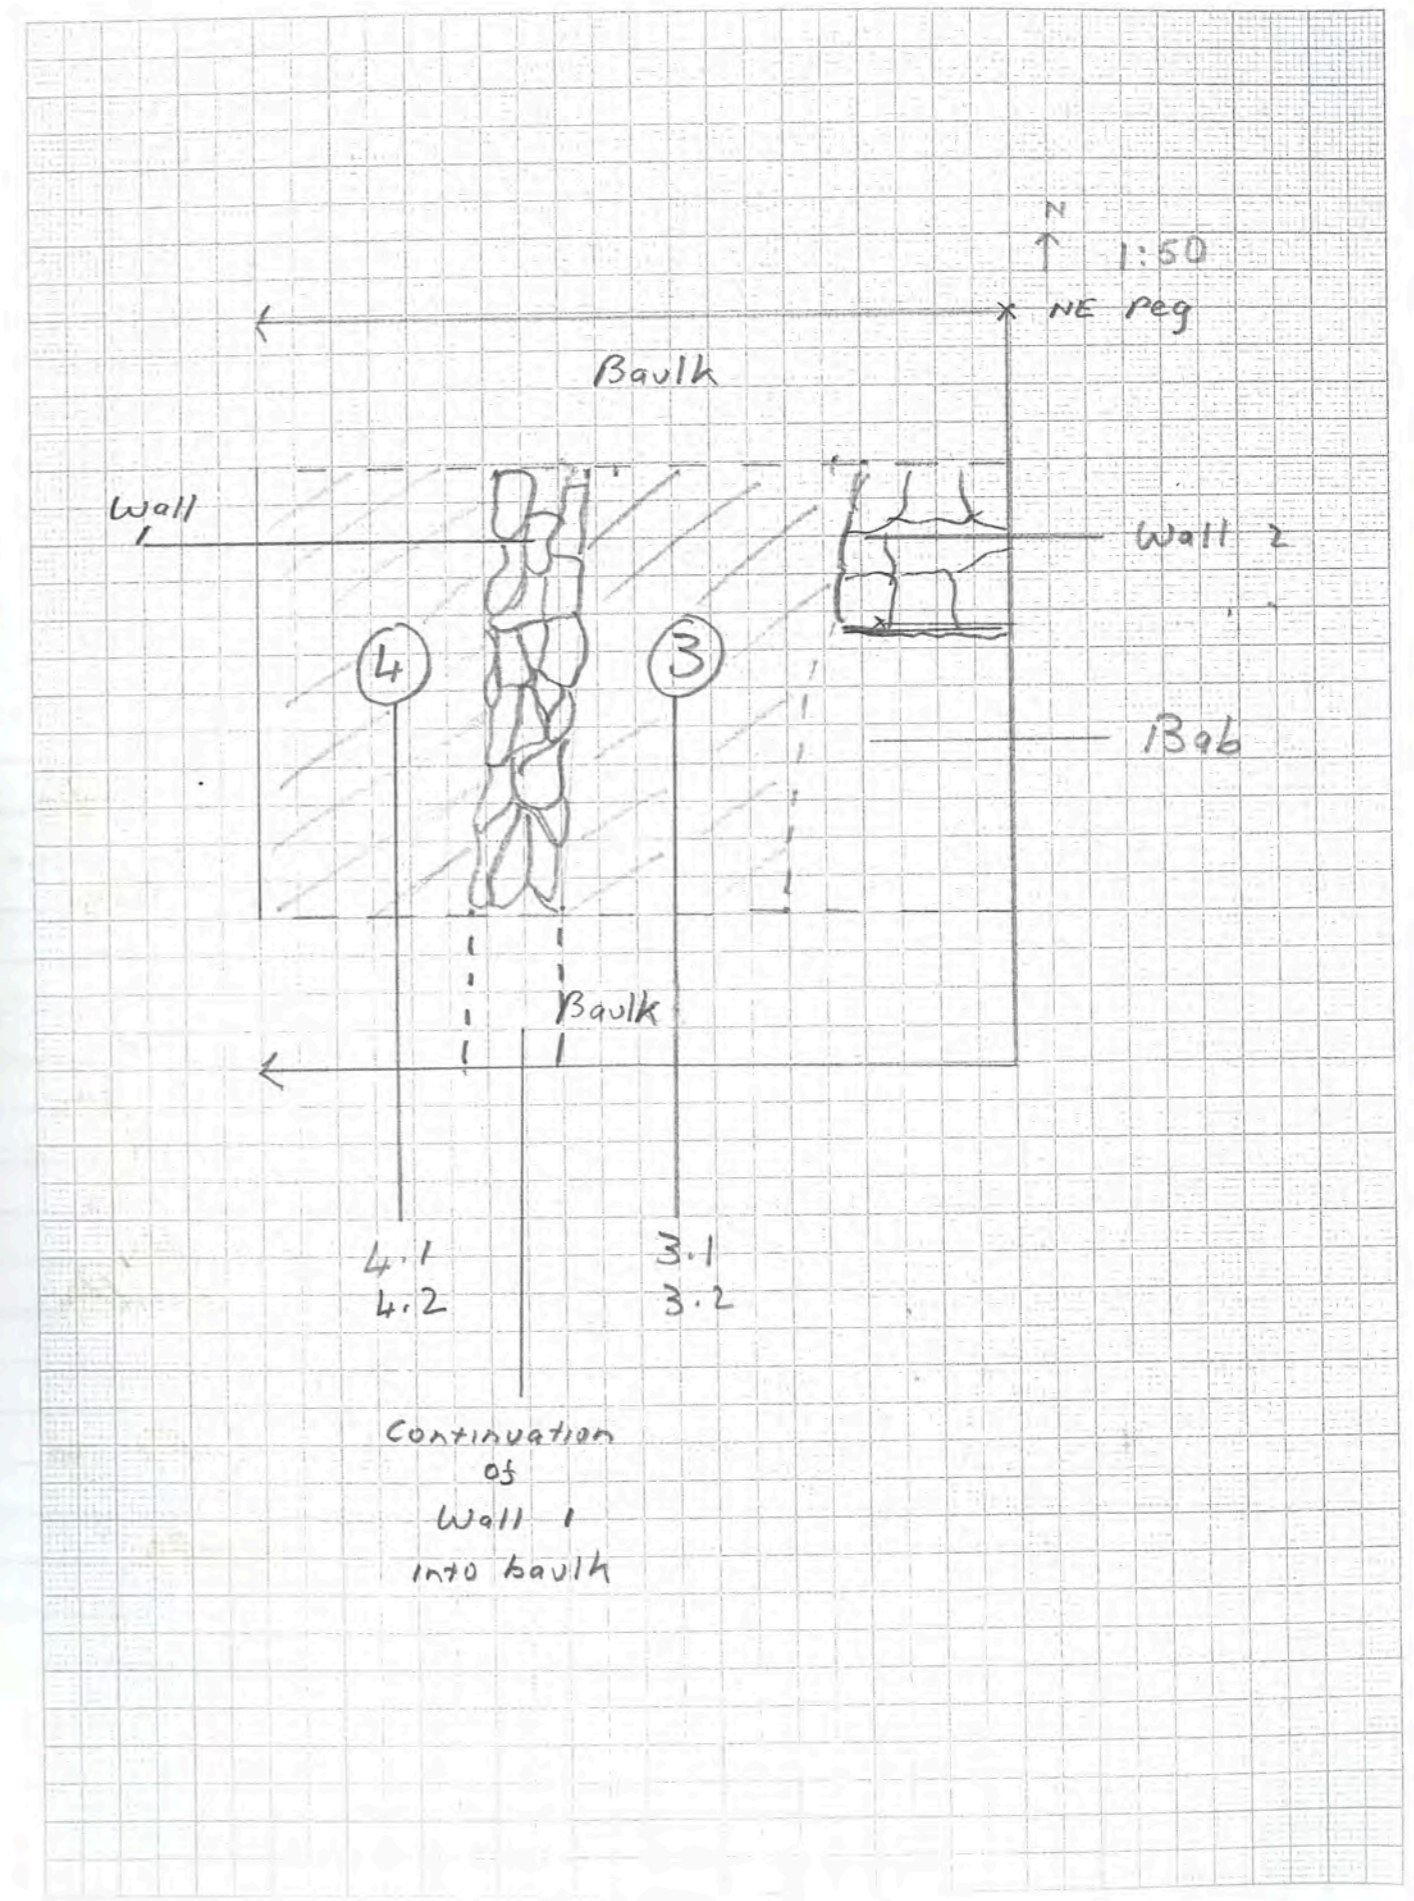 N
1:50
NE Peg
Baulk
Wall
1
Wall 2
4
3
Bab
Baulk
4.1
4.2
3.1
3.2
Continuation
of
Wall 1
into baulk